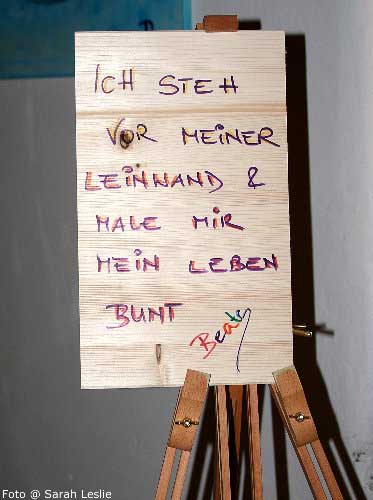 ICH STEH
VOR MEINER
LEINWAND &
MALE MIR
MEIN LEBEN
BUNT
Beaty
Foto @ Sarah Leslie